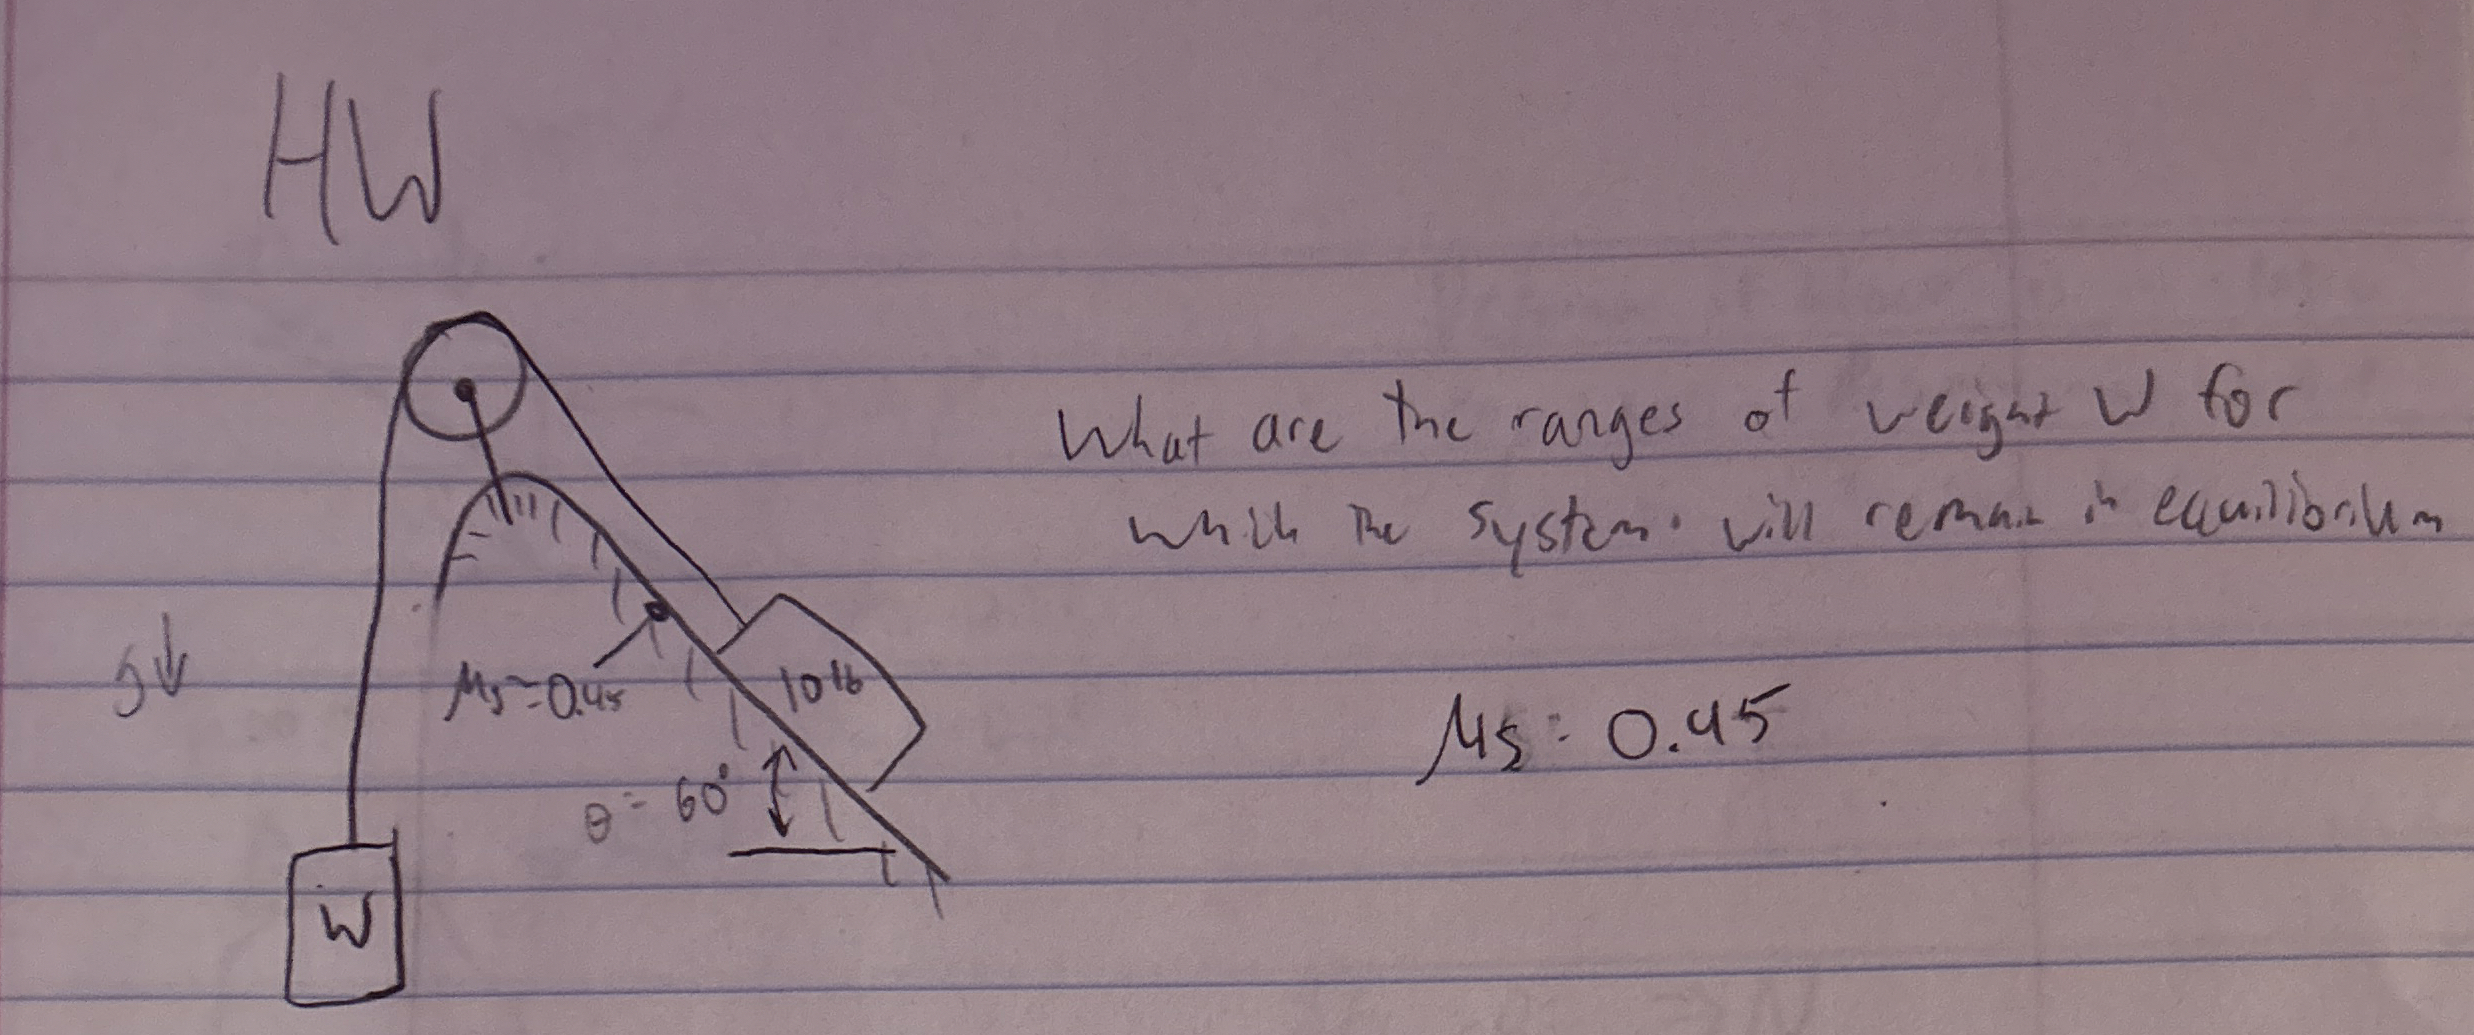 HW
What are the ranges of weight W for
which the system. will remain in equilibrium
g↓
μs=0.45
10 lb
μs: 0.45
θ = 60°
W